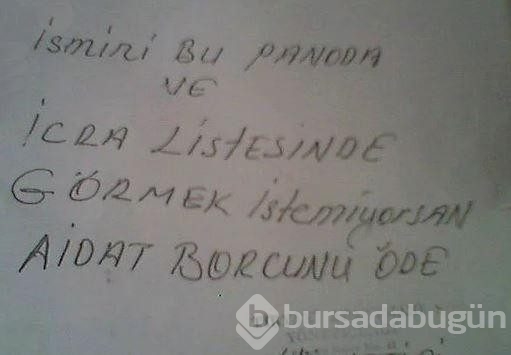 ismini BU PANODA
VE
İCRA LİSTESİNDE
GÖRMEK İstemiyorsAN
AİDAT BORCUNU ÖDE
b bursadabugün